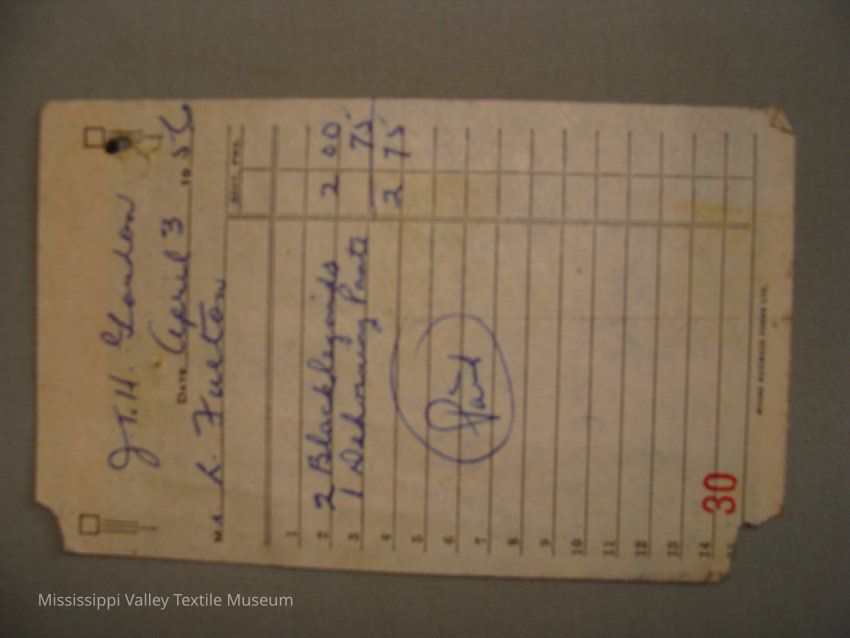 J.T.H. London
DATE April 3 1956
M R. Fulton
ACCT. FWD.
1
2 2 Blacklegoids 2 00
3 1 Dehorning Paste 75
4 2 75
5
6 Paid
7
8
9
10
11
12
13
14
15
30
Mississippi Valley Textile Museum